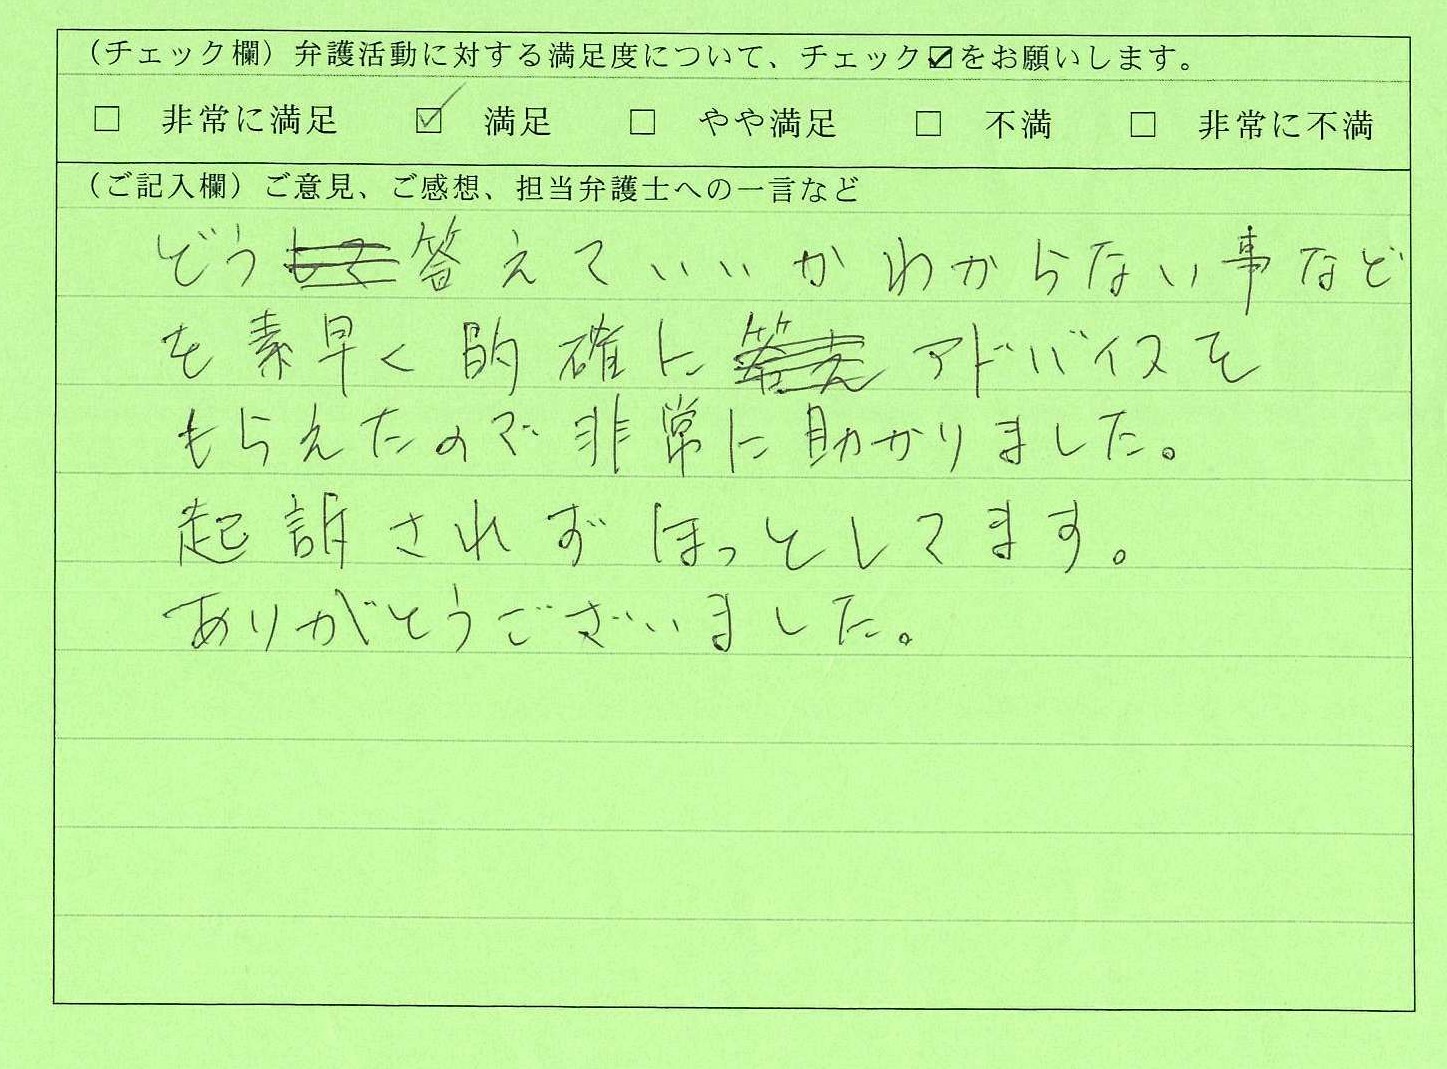 (チェック欄) 弁護活動に対する満足度について、チェック☑をお願いします。
□ 非常に満足 ☑ 満足 □ やや満足 □ 不満 □ 非常に不満
(ご記入欄) ご意見、ご感想、担当弁護士への一言など
どう答えていいかわからない事など
を素早く的確に アドバイスを
もらえたので非常に助かりました。
起訴されずほっとしてます。
ありがとうございました。